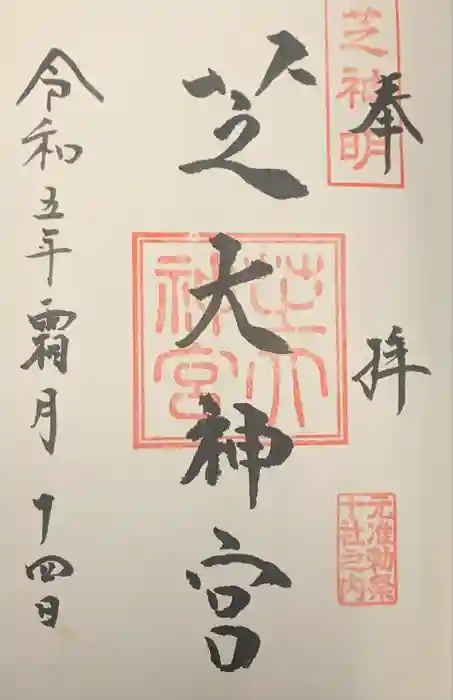 奉拝
芝神明
元准勅祭
十社之内
芝大神宮
芝大神宮
令和五年霜月十四日